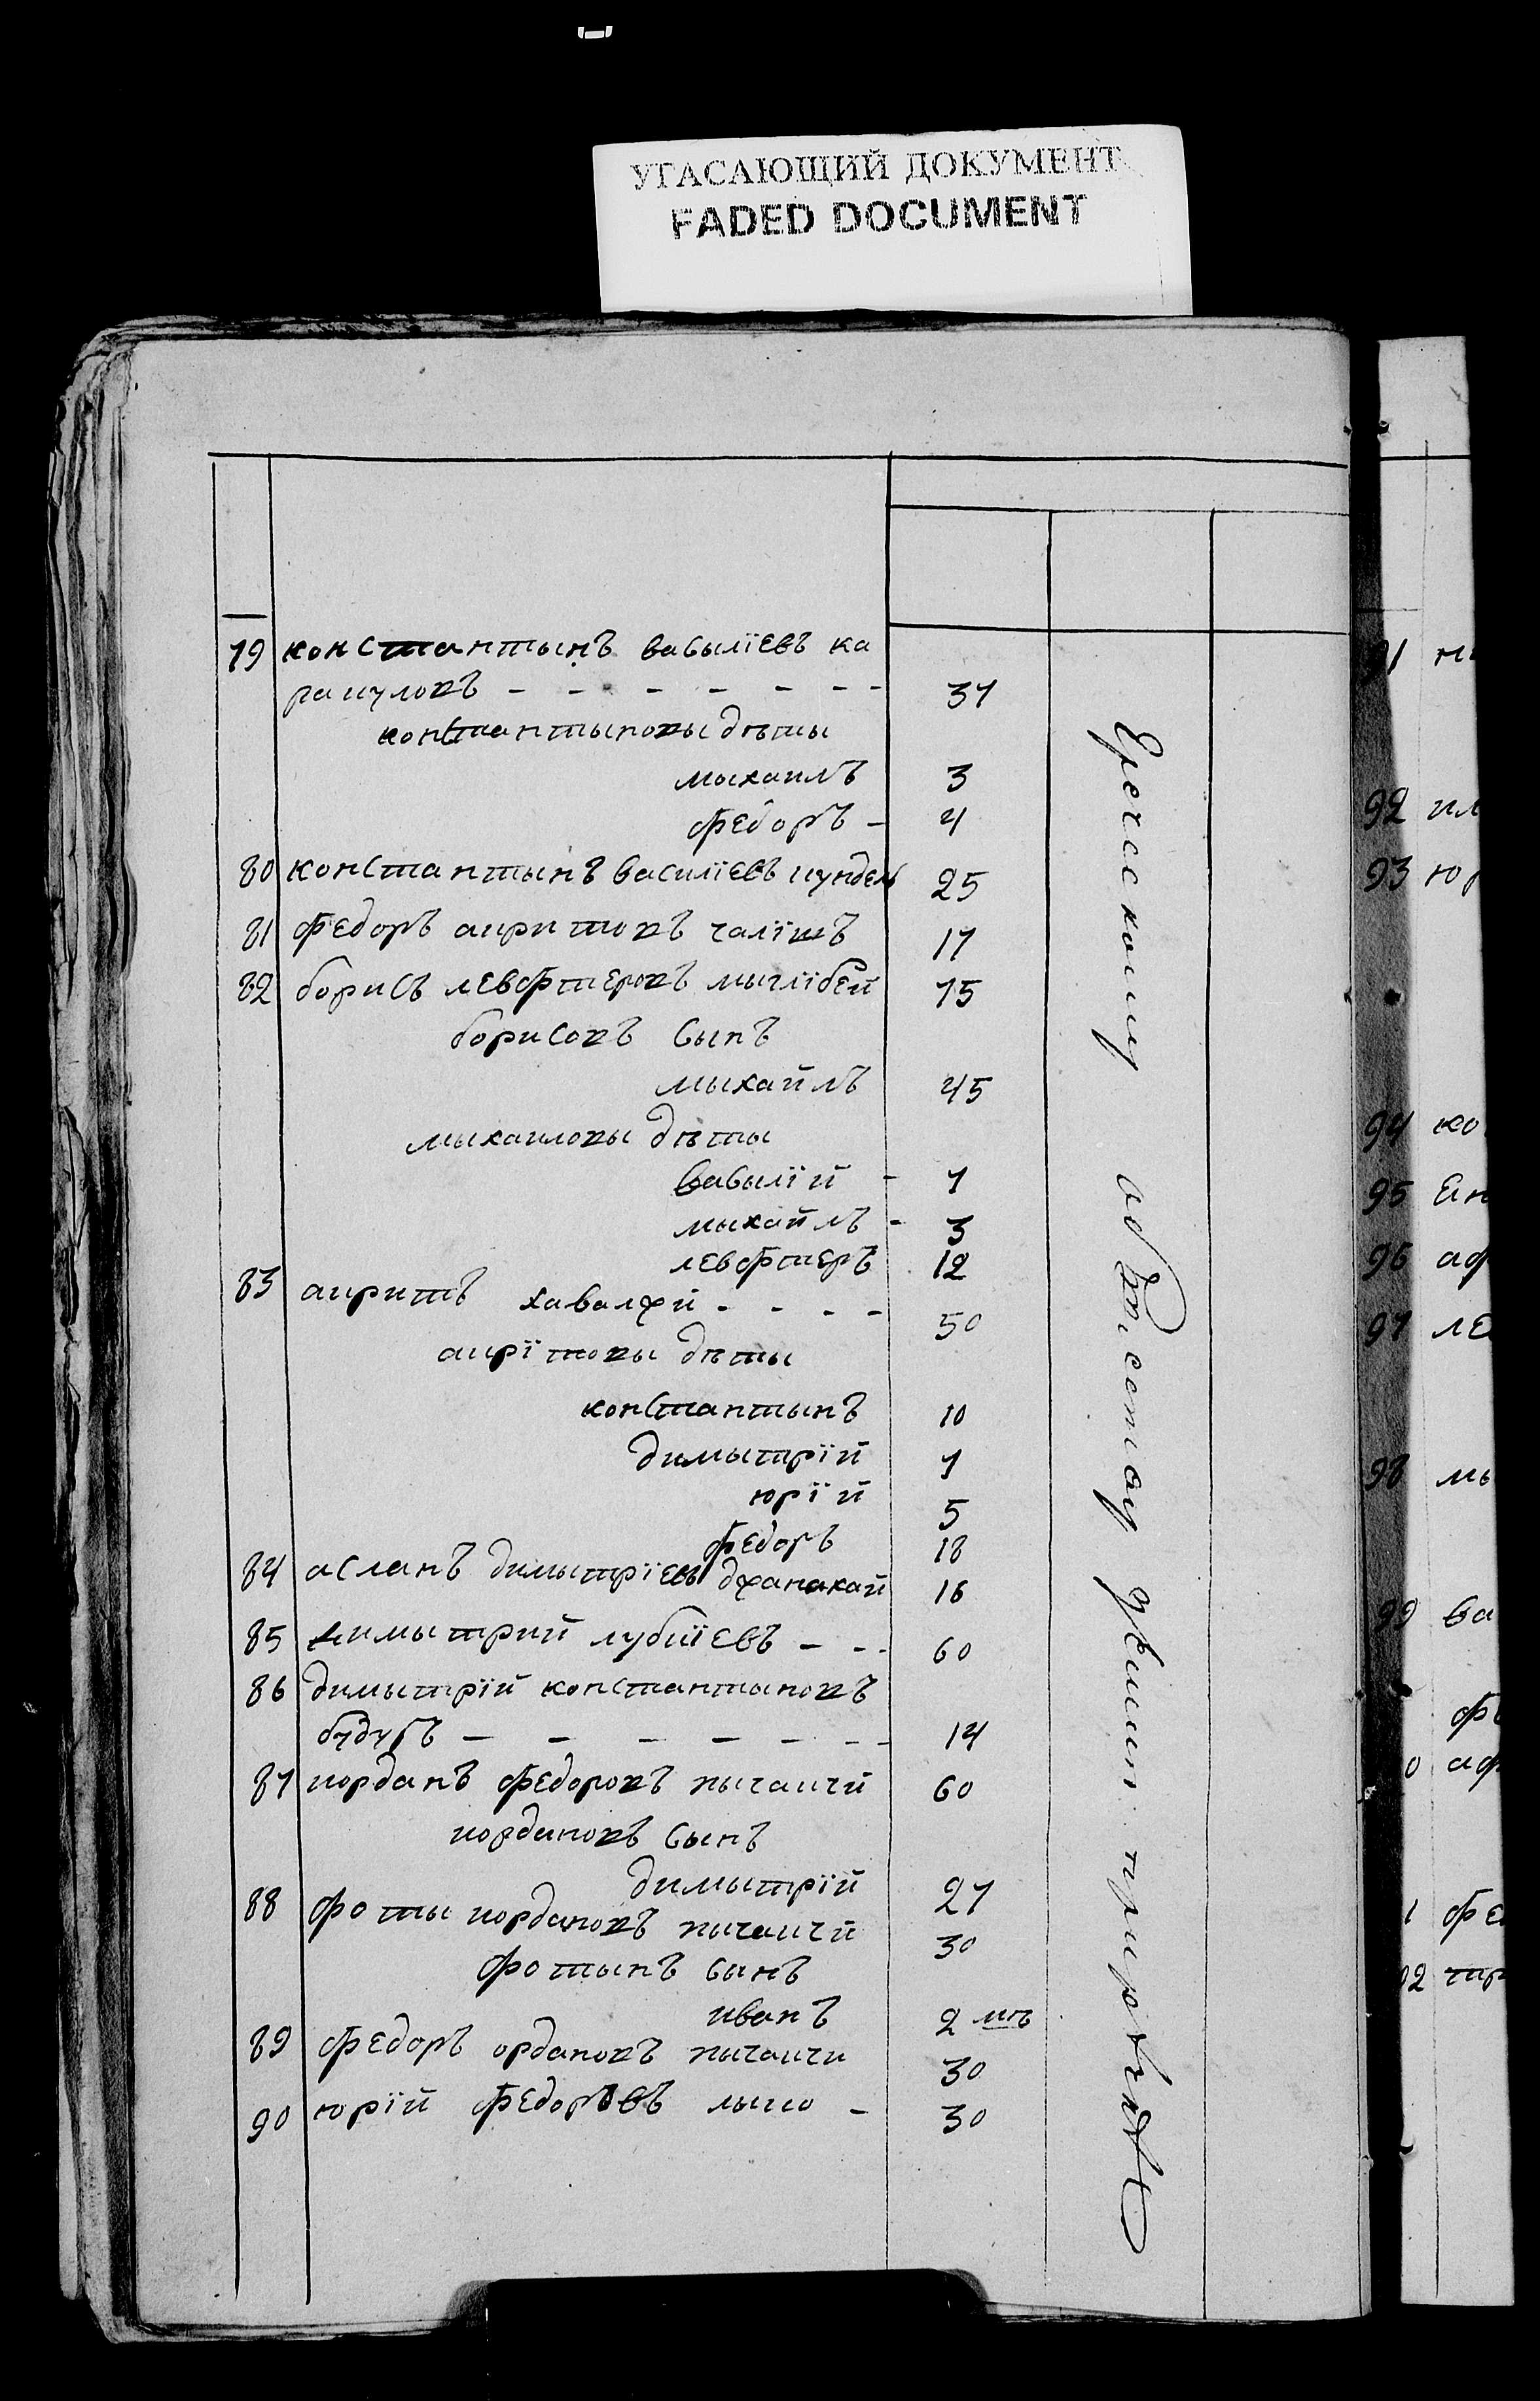 УГАСАЮЩИЙ ДОКУМЕНТ
FADED DOCUMENT
79 константынъ васылїевъ ка
рацуловъ - - - - - - - 37
константыновы дѣты
мыхаилъ 3
федоръ - 4
80 константынъ василїевъ цундель 25
81 федоръ агритовъ чалїшъ 17
82 борисъ левфтеровъ мычлїбей 75
борисовъ сынъ
мыхайлъ 45
мыхаиловы дѣты
васылїй - 7
мыхайлъ - 3
левфтеръ 12
83 агритъ хавалжи - - - - 50
агрїтовы дѣты
константынъ 10
димытрїй 7
юрїй 5
федоръ 18
84 асланъ димытрїевъ джанакай 16
85 димытрий лубиїевъ - - - 60
86 димытрїй константыновъ
будуръ - - - - - - - 14
87 иорданъ федоровъ пычакчи 60
иордановъ сынъ
димытрїй 27
88 фоты иордановъ пычакчи 30
фотынъ сынъ
иванъ 2 мѣ
89 федоръ ордановъ пычакчи 30
90 юрїй федоровъ - 30
Греческому обществу
91
92 ил
93 юр
94 ко
95
96 аф
97 ле
98 мы
99 ва
фе
0 аф
1 фе
02 тр